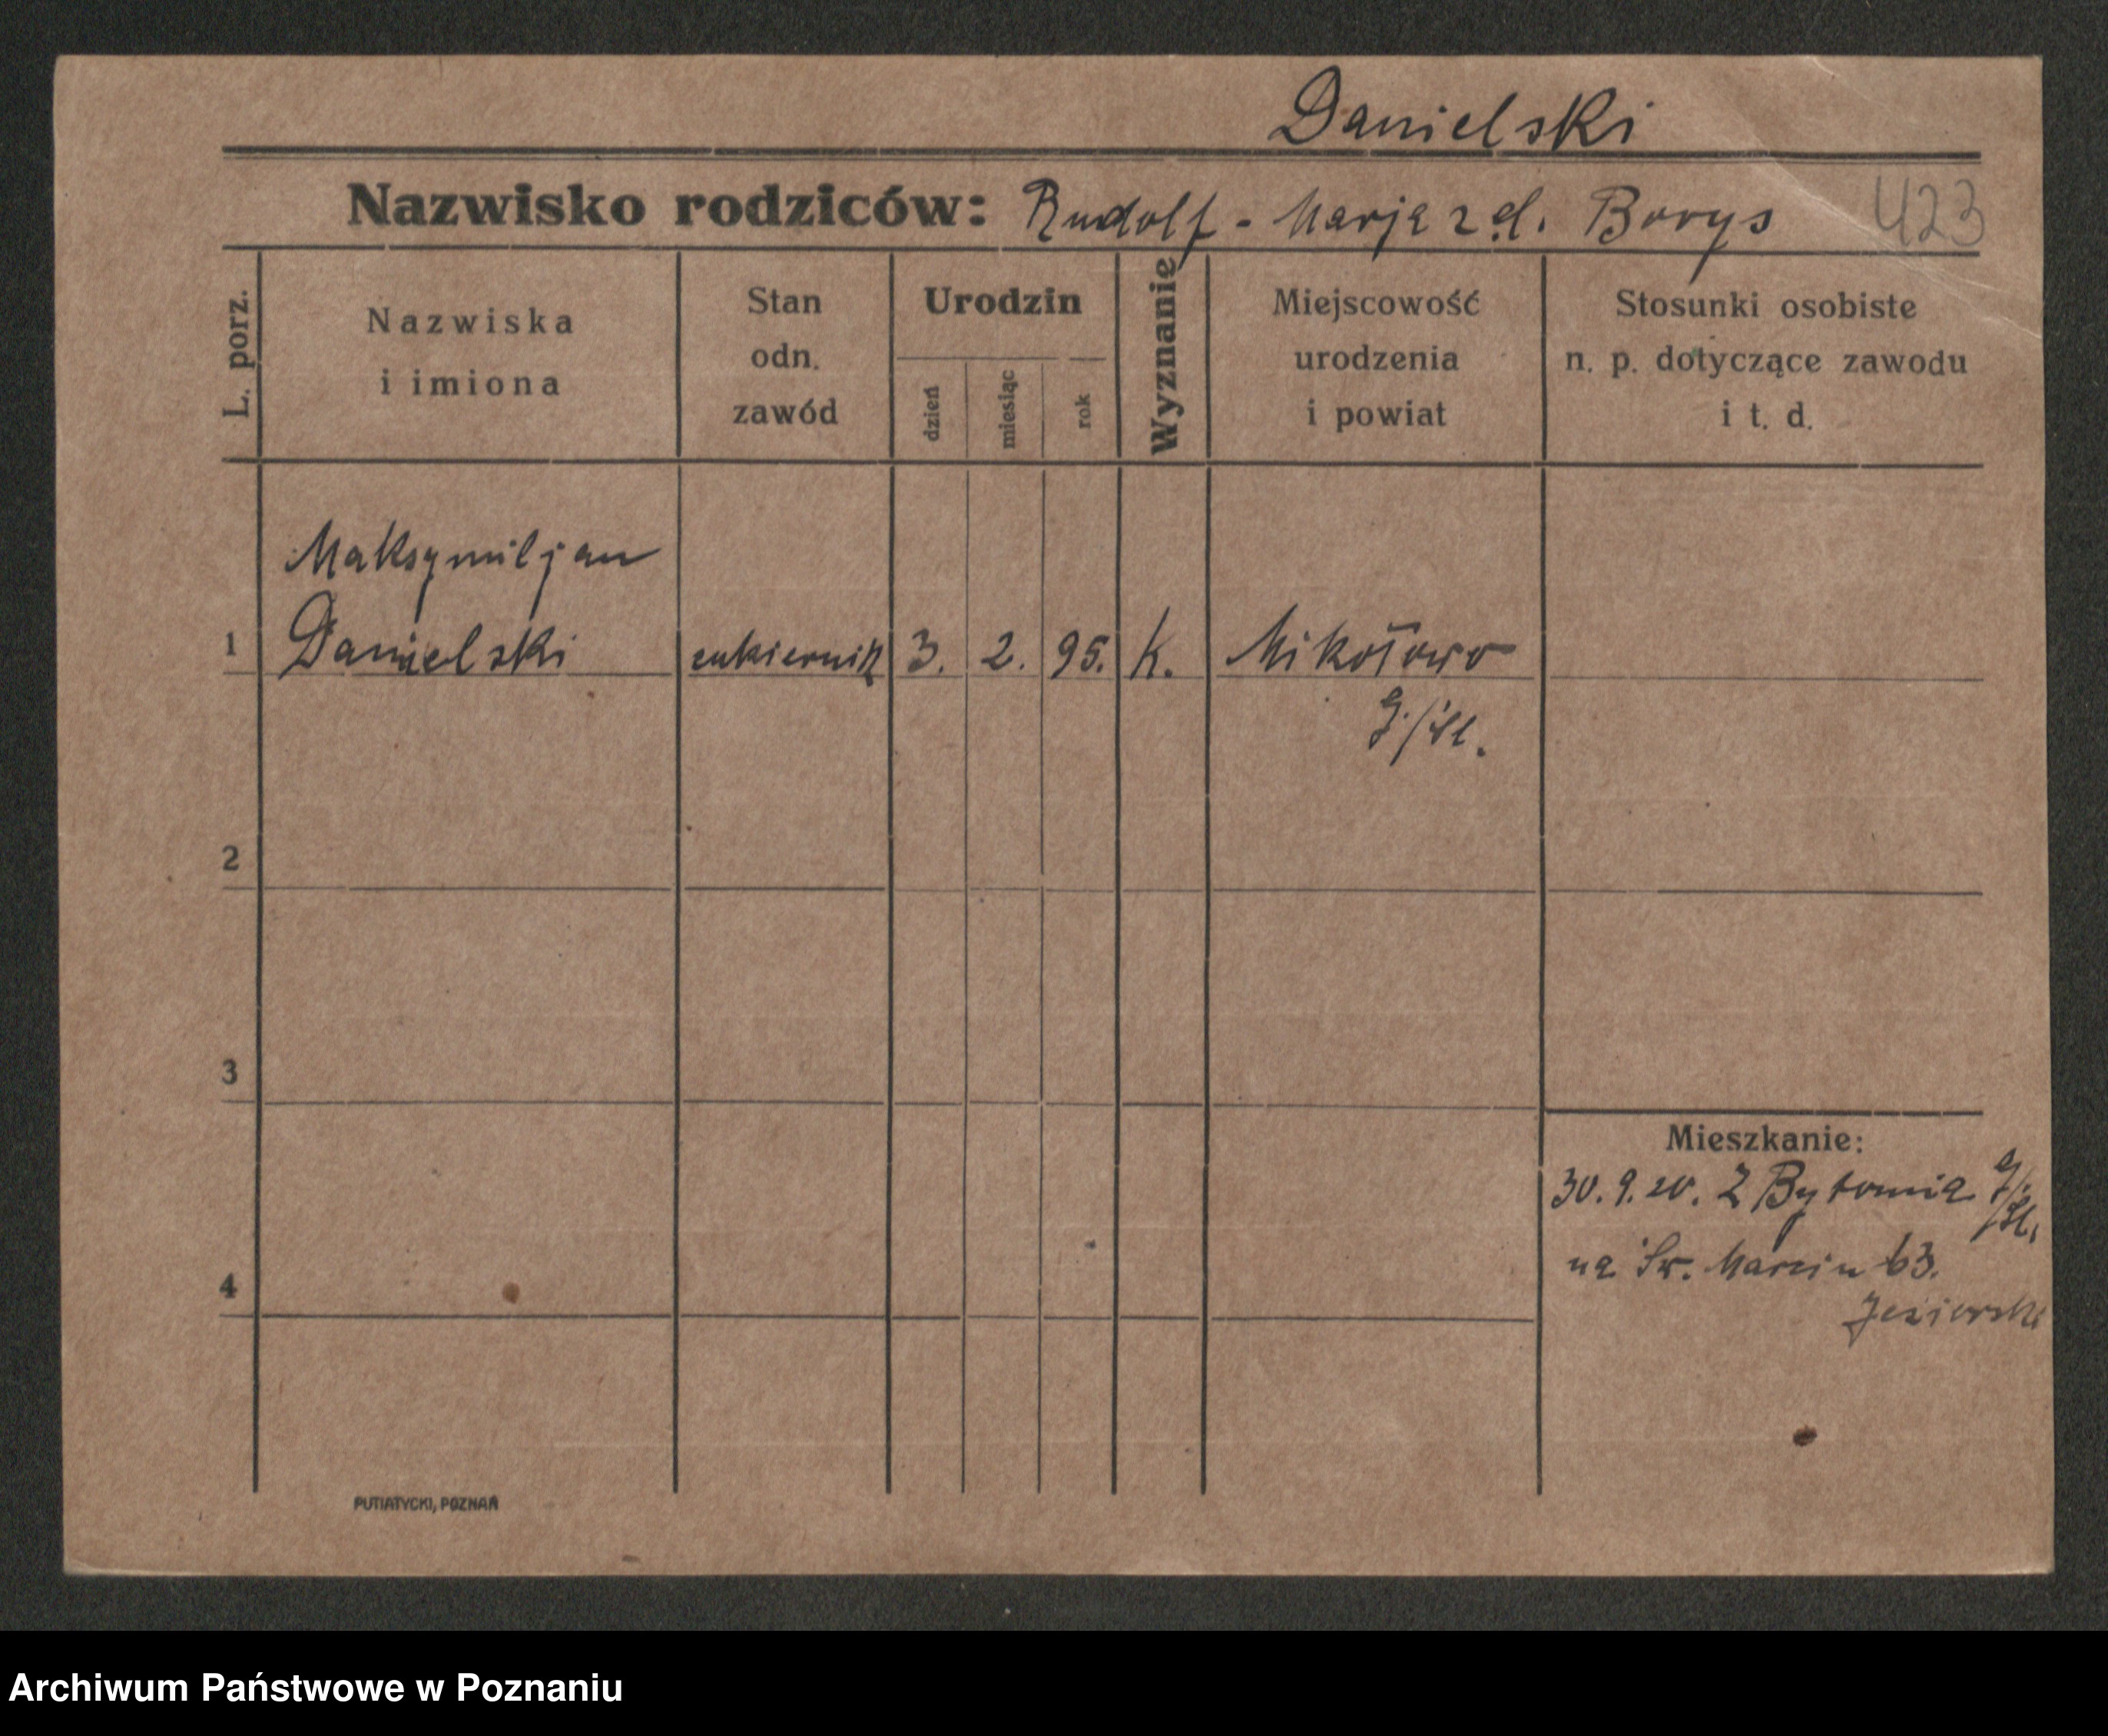 Danielski
Nazwisko rodziców: Rudolf - Marja z d. Borys 423
L. porz.
Nazwiska
i imiona
Stan
odn.
zawód
Urodzin
dzień
miesiąc
rok
Wyznanie
Miejscowość
urodzenia
i powiat
Stosunki osobiste
n. p. dotyczące zawodu
i t. d.
Maksymiljan
1 Danielski cukiernik 3. 2. 95. k. Mikołowo
G./Śl.
2
3
4
Mieszkanie:
30.9.20. Z Bytomia G./Śl.
na Św. Marcin 63.
Jeziorski
PUTIATYCKI, POZNAŃ
Archiwum Państwowe w Poznaniu